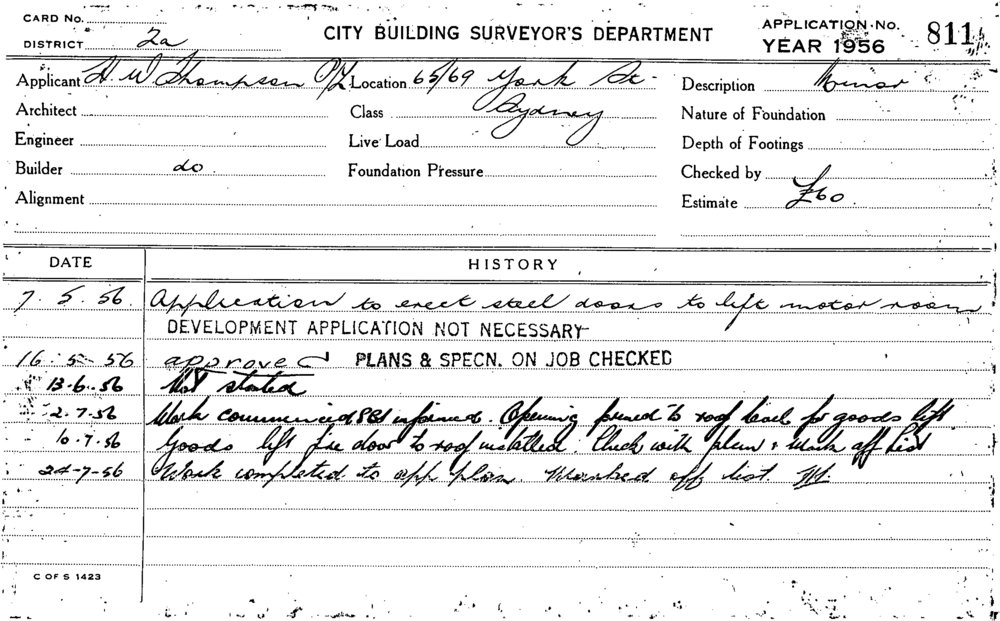 CARD No.
DISTRICT 2a
CITY BUILDING SURVEYOR'S DEPARTMENT
APPLICATION No. 811
YEAR 1956
Applicant H W Thompson P/L Location 65/69 York St. Description Minor
Architect Class Sydney Nature of Foundation
Engineer Live Load Depth of Footings
Builder do Foundation Pressure Checked by
Alignment Estimate £60
DATE HISTORY
7. 5. 56. Application to erect steel doors to lift motor room
DEVELOPMENT APPLICATION NOT NECESSARY
16-5-56 approved PLANS & SPECN. ON JOB CHECKED
13.6.56 Not started
2.7.56 Work commenced informed. Opening formed to roof level for goods lift
10.7.56 Goods lift fire door to roof installed. Check with plan & mark off list
24-7-56 Work completed to app plan. Marked off list.
C OF S 1423